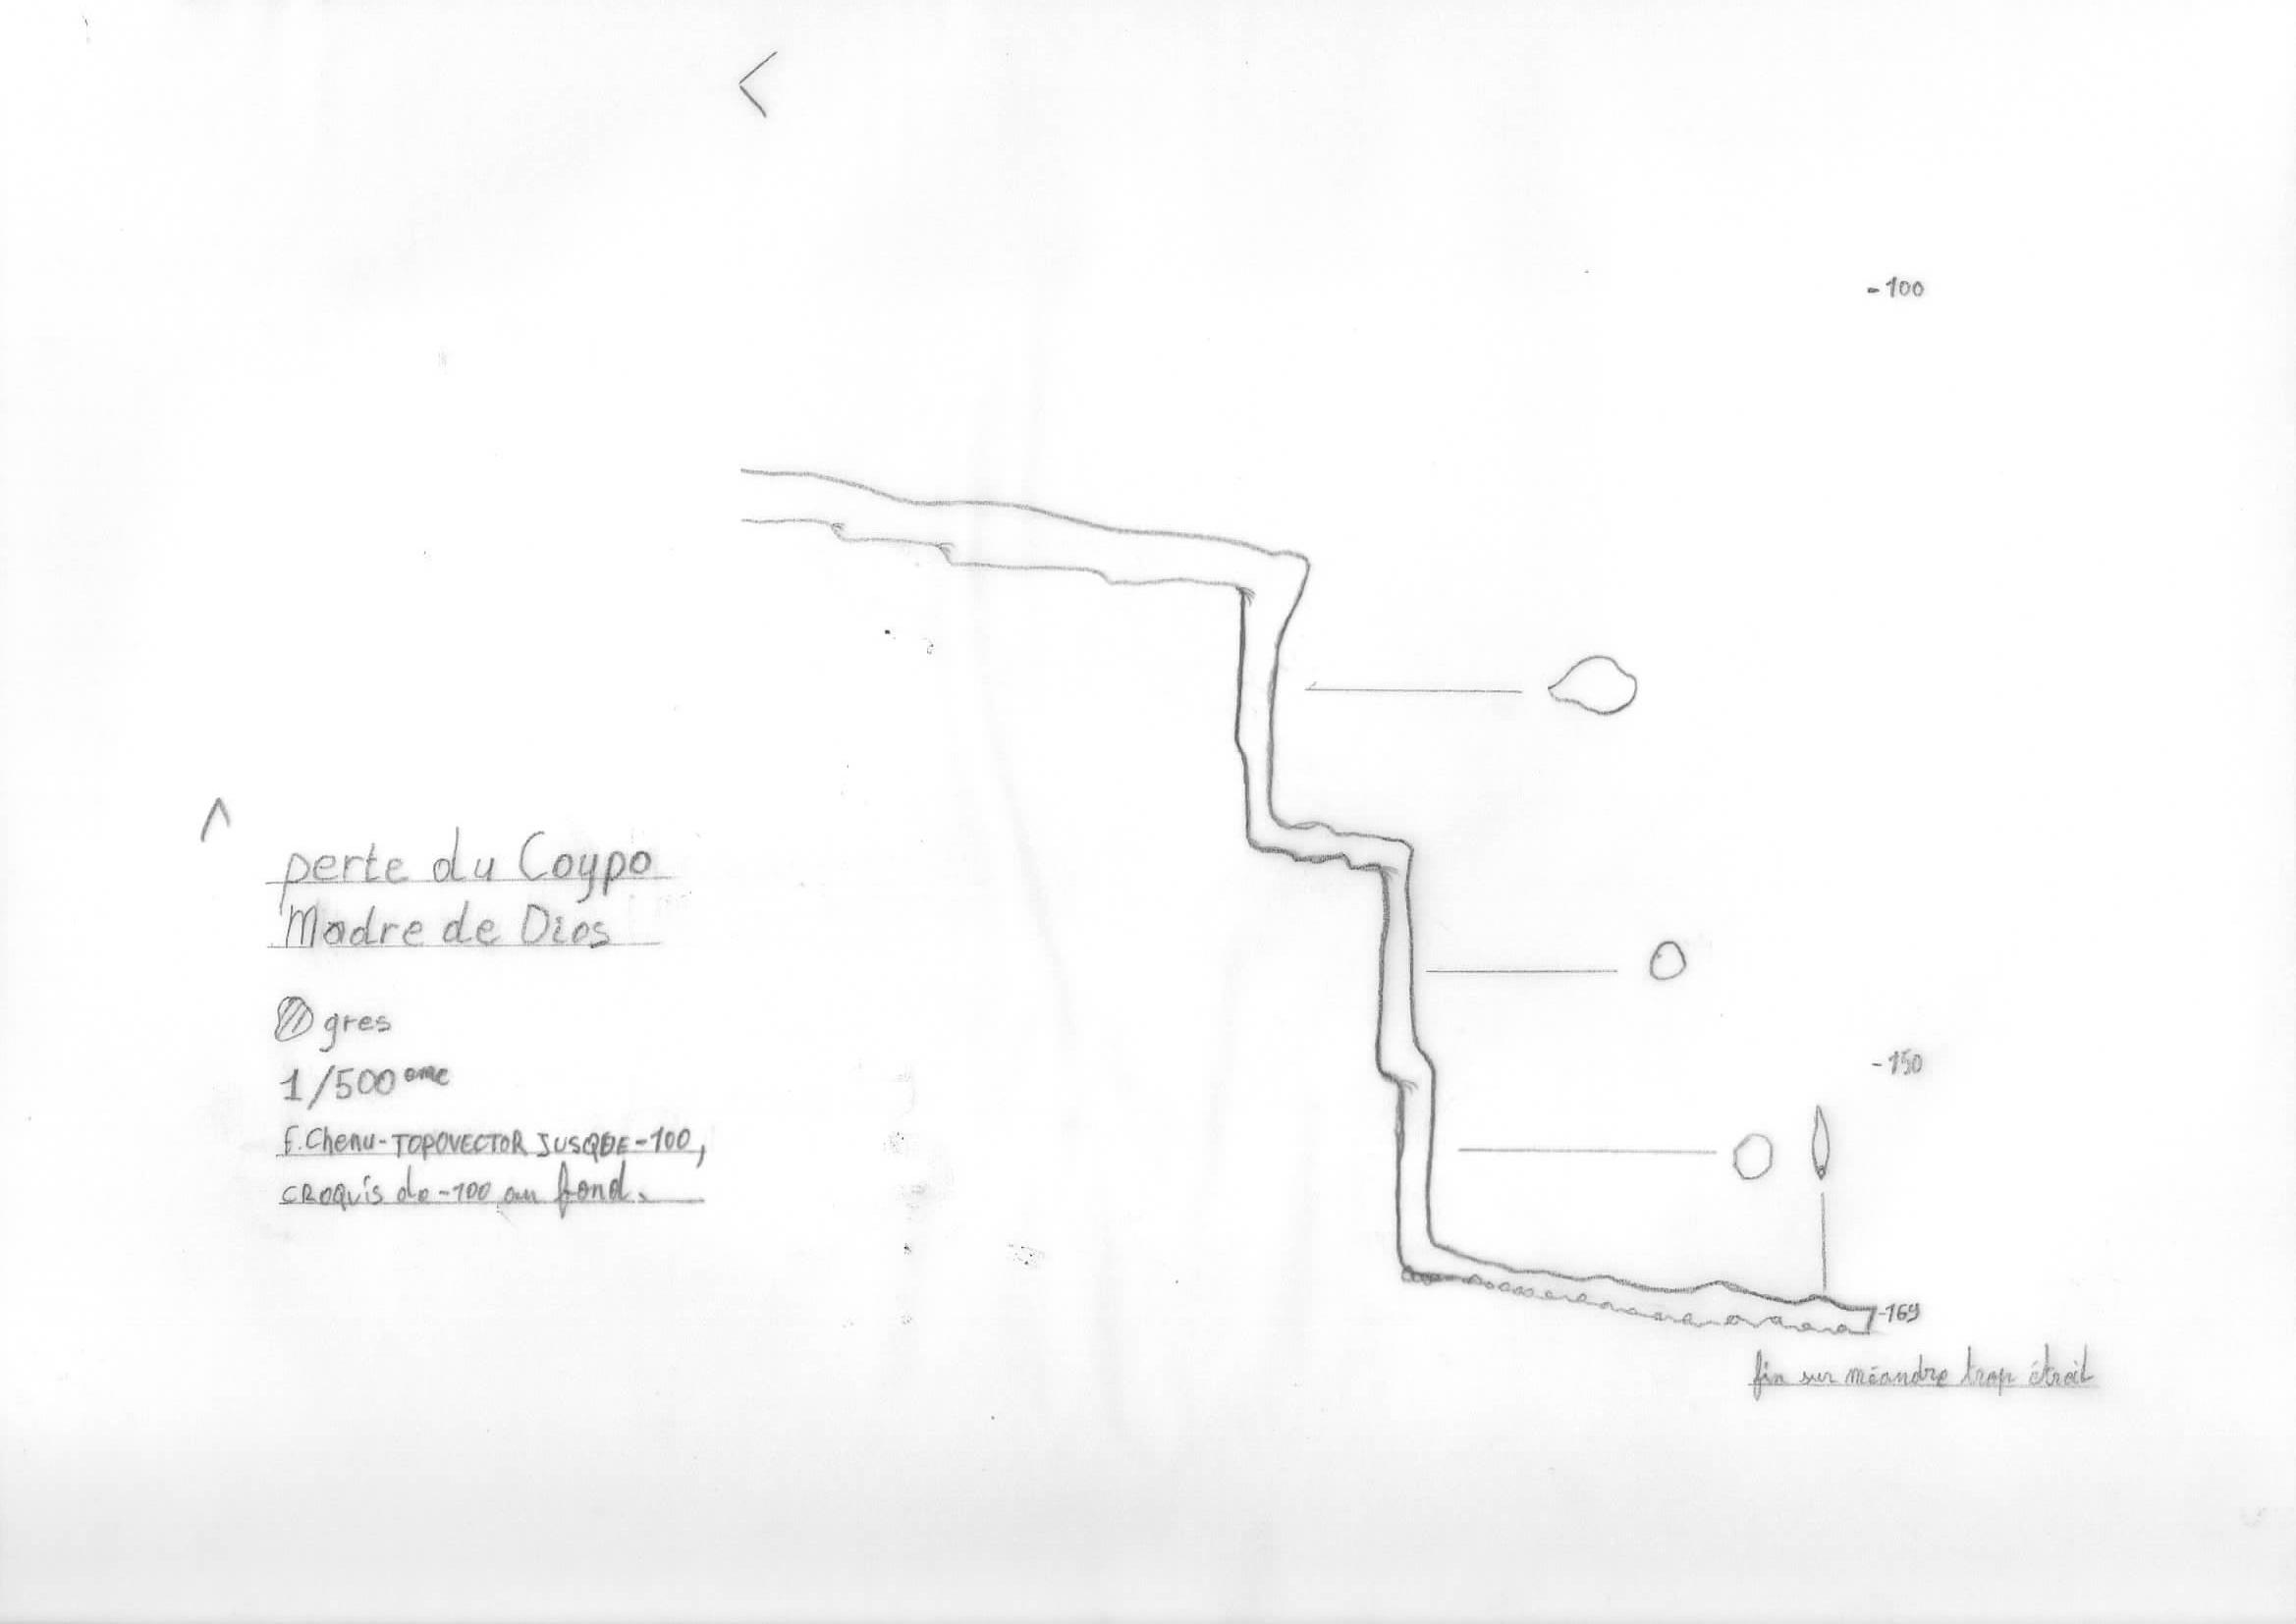 -100
perte du Coypo
Madre de Dios
gres
1/500eme
F. Chenu - TOPOVECTOR JUSQUE -100,
CROQUIS de -100 au fond.
-150
-169
fin sur méandre trop étroit